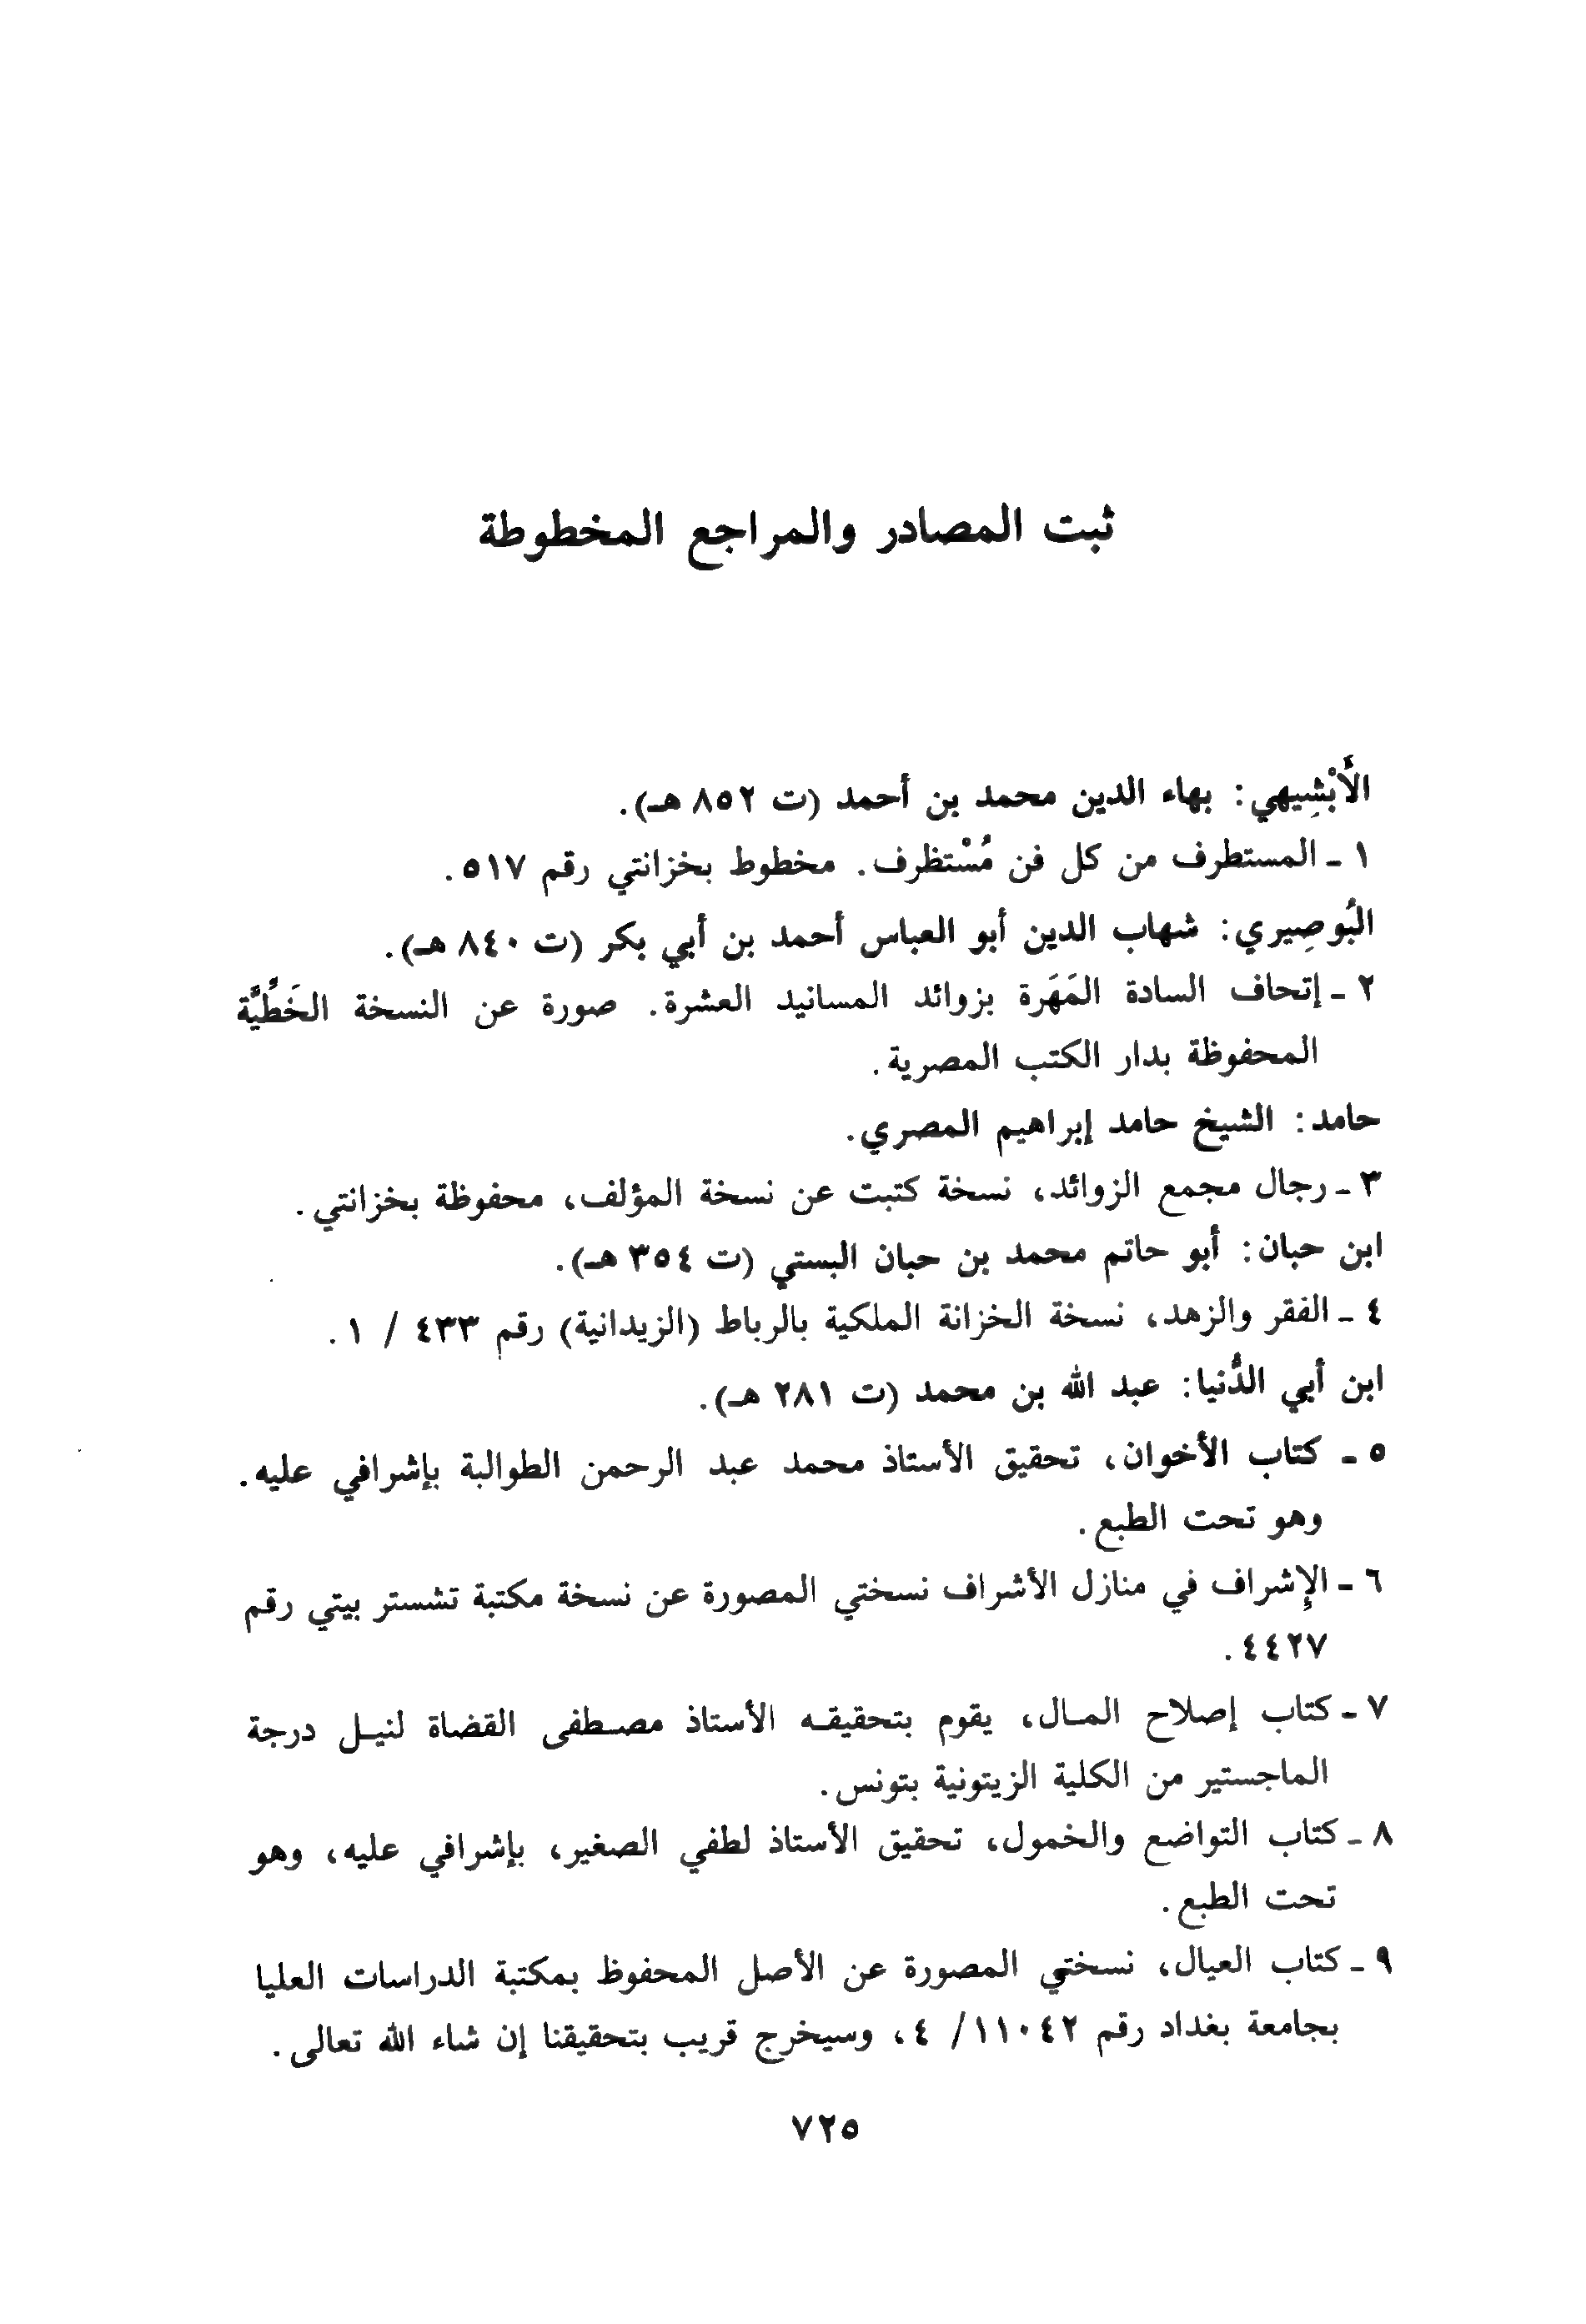 ثبت المصادر والمراجع المخطوطة
الأَبْشِيهي: بهاء الدين محمد بن أحمد (ت ٨٥٢ هـ).
١ - المستطرف من كل فن مُسْتظرف. مخطوط بخزانتي رقم ٥١٧.
البُوصِيري: شهاب الدين أبو العباس أحمد بن أبي بكر (ت ٨٤٠ هـ).
٢ - إتحاف السادة المَهَرة بزوائد المسانيد العشرة. صورة عن النسخة الخَطِّيَّة
المحفوظة بدار الكتب المصرية.
حامد: الشيخ حامد إبراهيم المصري.
٣ - رجال مجمع الزوائد، نسخة كتبت عن نسخة المؤلف، محفوظة بخزانتي.
ابن حبان: أبو حاتم محمد بن حبان البستي (ت ٣٥٤ هـ).
٤ - الفقر والزهد، نسخة الخزانة الملكية بالرباط (الزيدانية) رقم ٤٣٣ / ١.
ابن أبي الدُّنيا: عبد الله بن محمد (ت ٢٨١ هـ).
٥ - كتاب الأخوان، تحقيق الأستاذ محمد عبد الرحمن الطوالبة بإشرافي عليه.
وهو تحت الطبع.
٦ - الإشراف في منازل الأشراف نسختي المصورة عن نسخة مكتبة تشستر بيتي رقم
٤٤٢٧.
٧ - كتاب إصلاح المـال، يقوم بتحقيقـه الأستاذ مصـطفى القضاة لنيـل درجة
الماجستير من الكلية الزيتونية بتونس.
٨ - كتاب التواضع والخمول، تحقيق الأستاذ لطفي الصغير، بإشرافي عليه، وهو
تحت الطبع.
٩ - كتاب العيال، نسختي المصورة عن الأصل المحفوظ بمكتبة الدراسات العليا
بجامعة بغداد رقم ١١٠٤٢/ ٤، وسيخرج قريب بتحقيقنا إن شاء الله تعالى.
٧٢٥